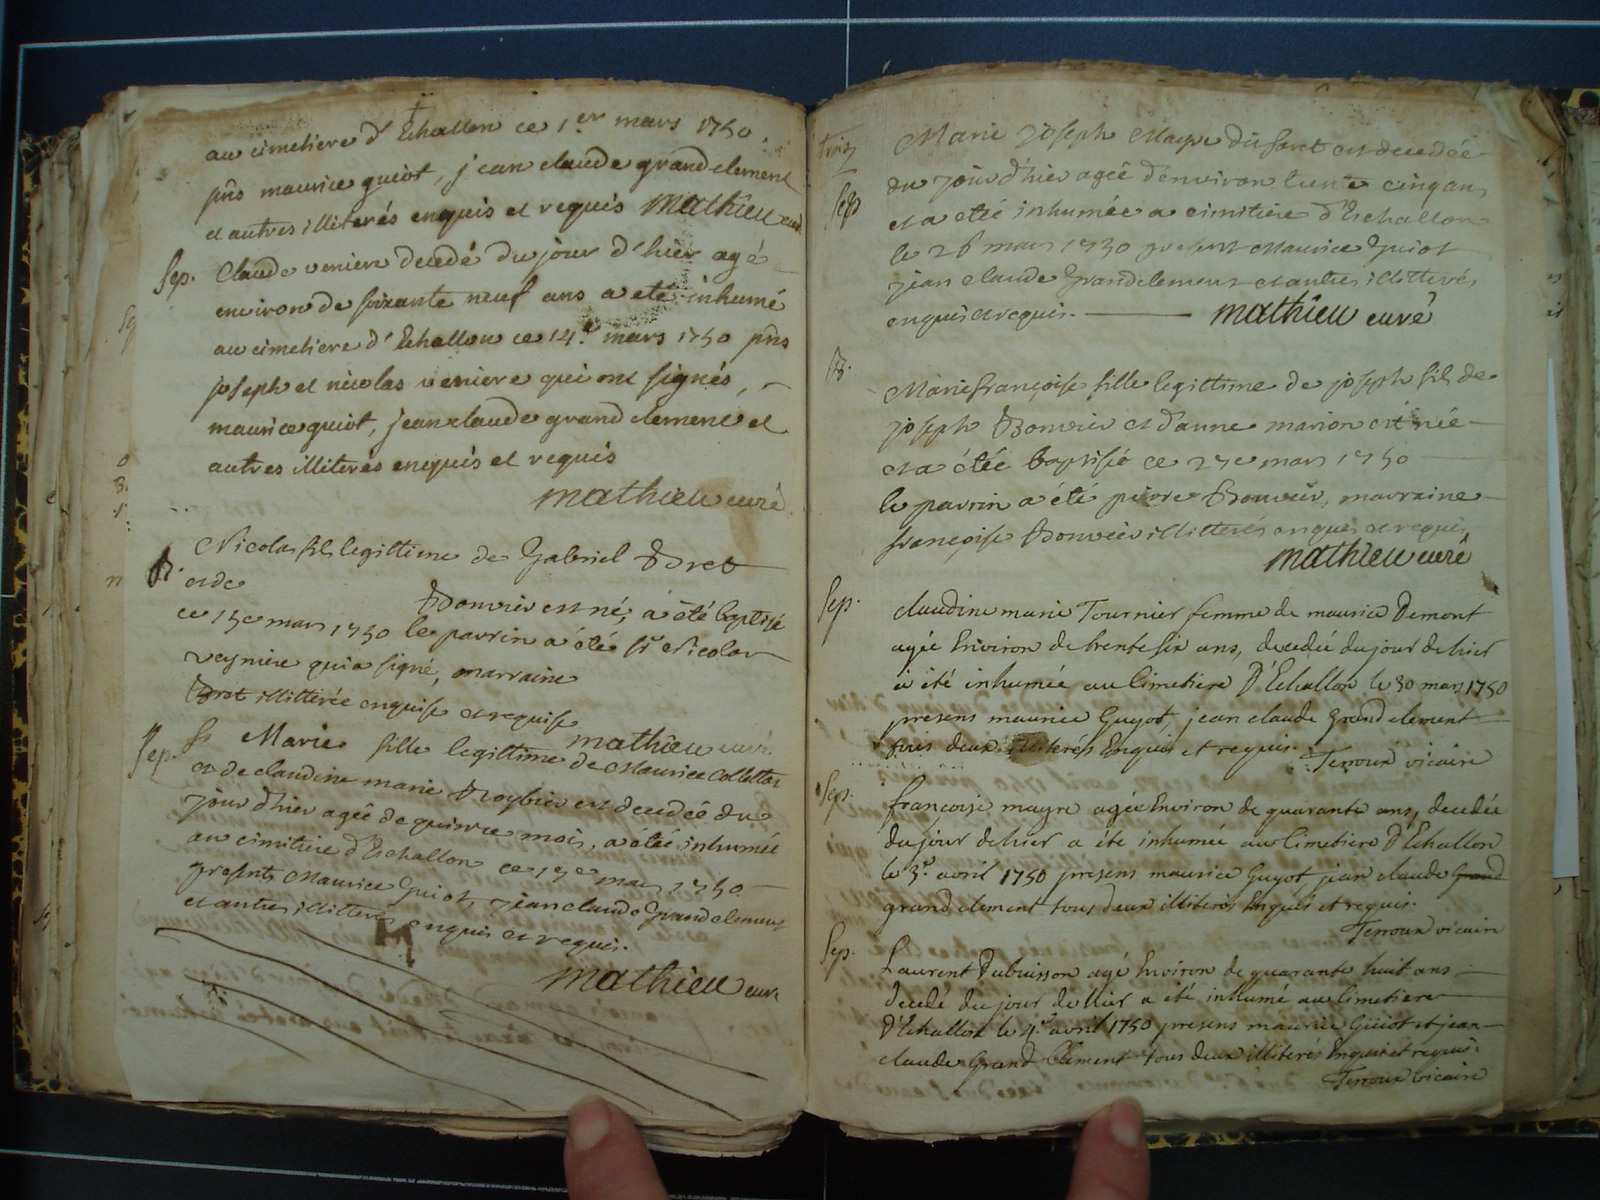 au cimetiere d'Echallon ce 1.er mars 1750.
pñs maurice guiot, jean claude grand clement
et autres illiterés enquis et requis Mathieu curé
Sep. Claude veniere decedé du jour d'hier agé
environ de soixante neuf ans a eté inhumé
au cimetiere d'Echallon ce 14.e mars 1750 pñs
joseph et nicolas veniere qui ont signés,
maurice guiot, jean claude grand clement et
autres illiterés enquis et requis
Mathieu curé
Nicolas fils legittime de Gabriel Bret
B. et de
Bouvier est né, a été baptisé
ce 15e mars 1750 le parrin a étée sr Nicolas
veyniere qui a signé, marraine
Bret illitterée enquise et requise
mathieu curé
Sep. Marie fille legittime de Maurice Collettaz
et de claudine marie Roybier est decedée du
jour d'hier agée de quinze mois, a étée inhumée
au cimitiere d'Echallon ce 17e mars 1750
presents Maurice Guiot, jean claude Grandclement
et autres illitteres enquis et requis.
Mathieu curé
Marie joseph Mayre du favet est decedée
du jour d'hier agée d'environ trente cinq ans
Sep. et a etée inhumée a cimitiere d'Echallon
le 26 mars 1750 present Maurice Guiot
jean claude Grandclement et autres illitterés
enquis et requis. Mathieu curé
B.
Marie françoise fille legittime de joseph fils de
joseph Bouvier et d'anne marion est née
et a étée baptisée ce 27e mars 1750
le parrin a été pierre Bouvier, marraine
françoise Bouvier illitterés enquis et requis
mathieu curé
Sep. claudine marie Tournier femme de maurice Demont
agée Environ de trente six ans, decedée du jour de hier
a été inhumée au Cimetiere D'Echallon le 30 mars 1750
presens maurice Guyot, jean claude Grand clement
tous deux illiterés Enquis et requis.
Terroux vicaire
Sep. françoise mayre agée Environ de quarante ans, decedée
du jour de hier a été inhumée au Cimetiere D'Echallon
le 3.e avril 1750 presens maurice Guyot jean claude Grand
grand clement tous deux illiterés Enquis et requis.
Terroux vicaire
Sep. Laurent Dubuisson agé Environ de quarante huit ans
Decedé du jour de hier a été inhumé au Cimetiere
D'Echallon le 4.e avril 1750 presens maurice Guiot et jean
claude Grand Clement tous deux illiterés Enquis et requis.
Terroux vicaire